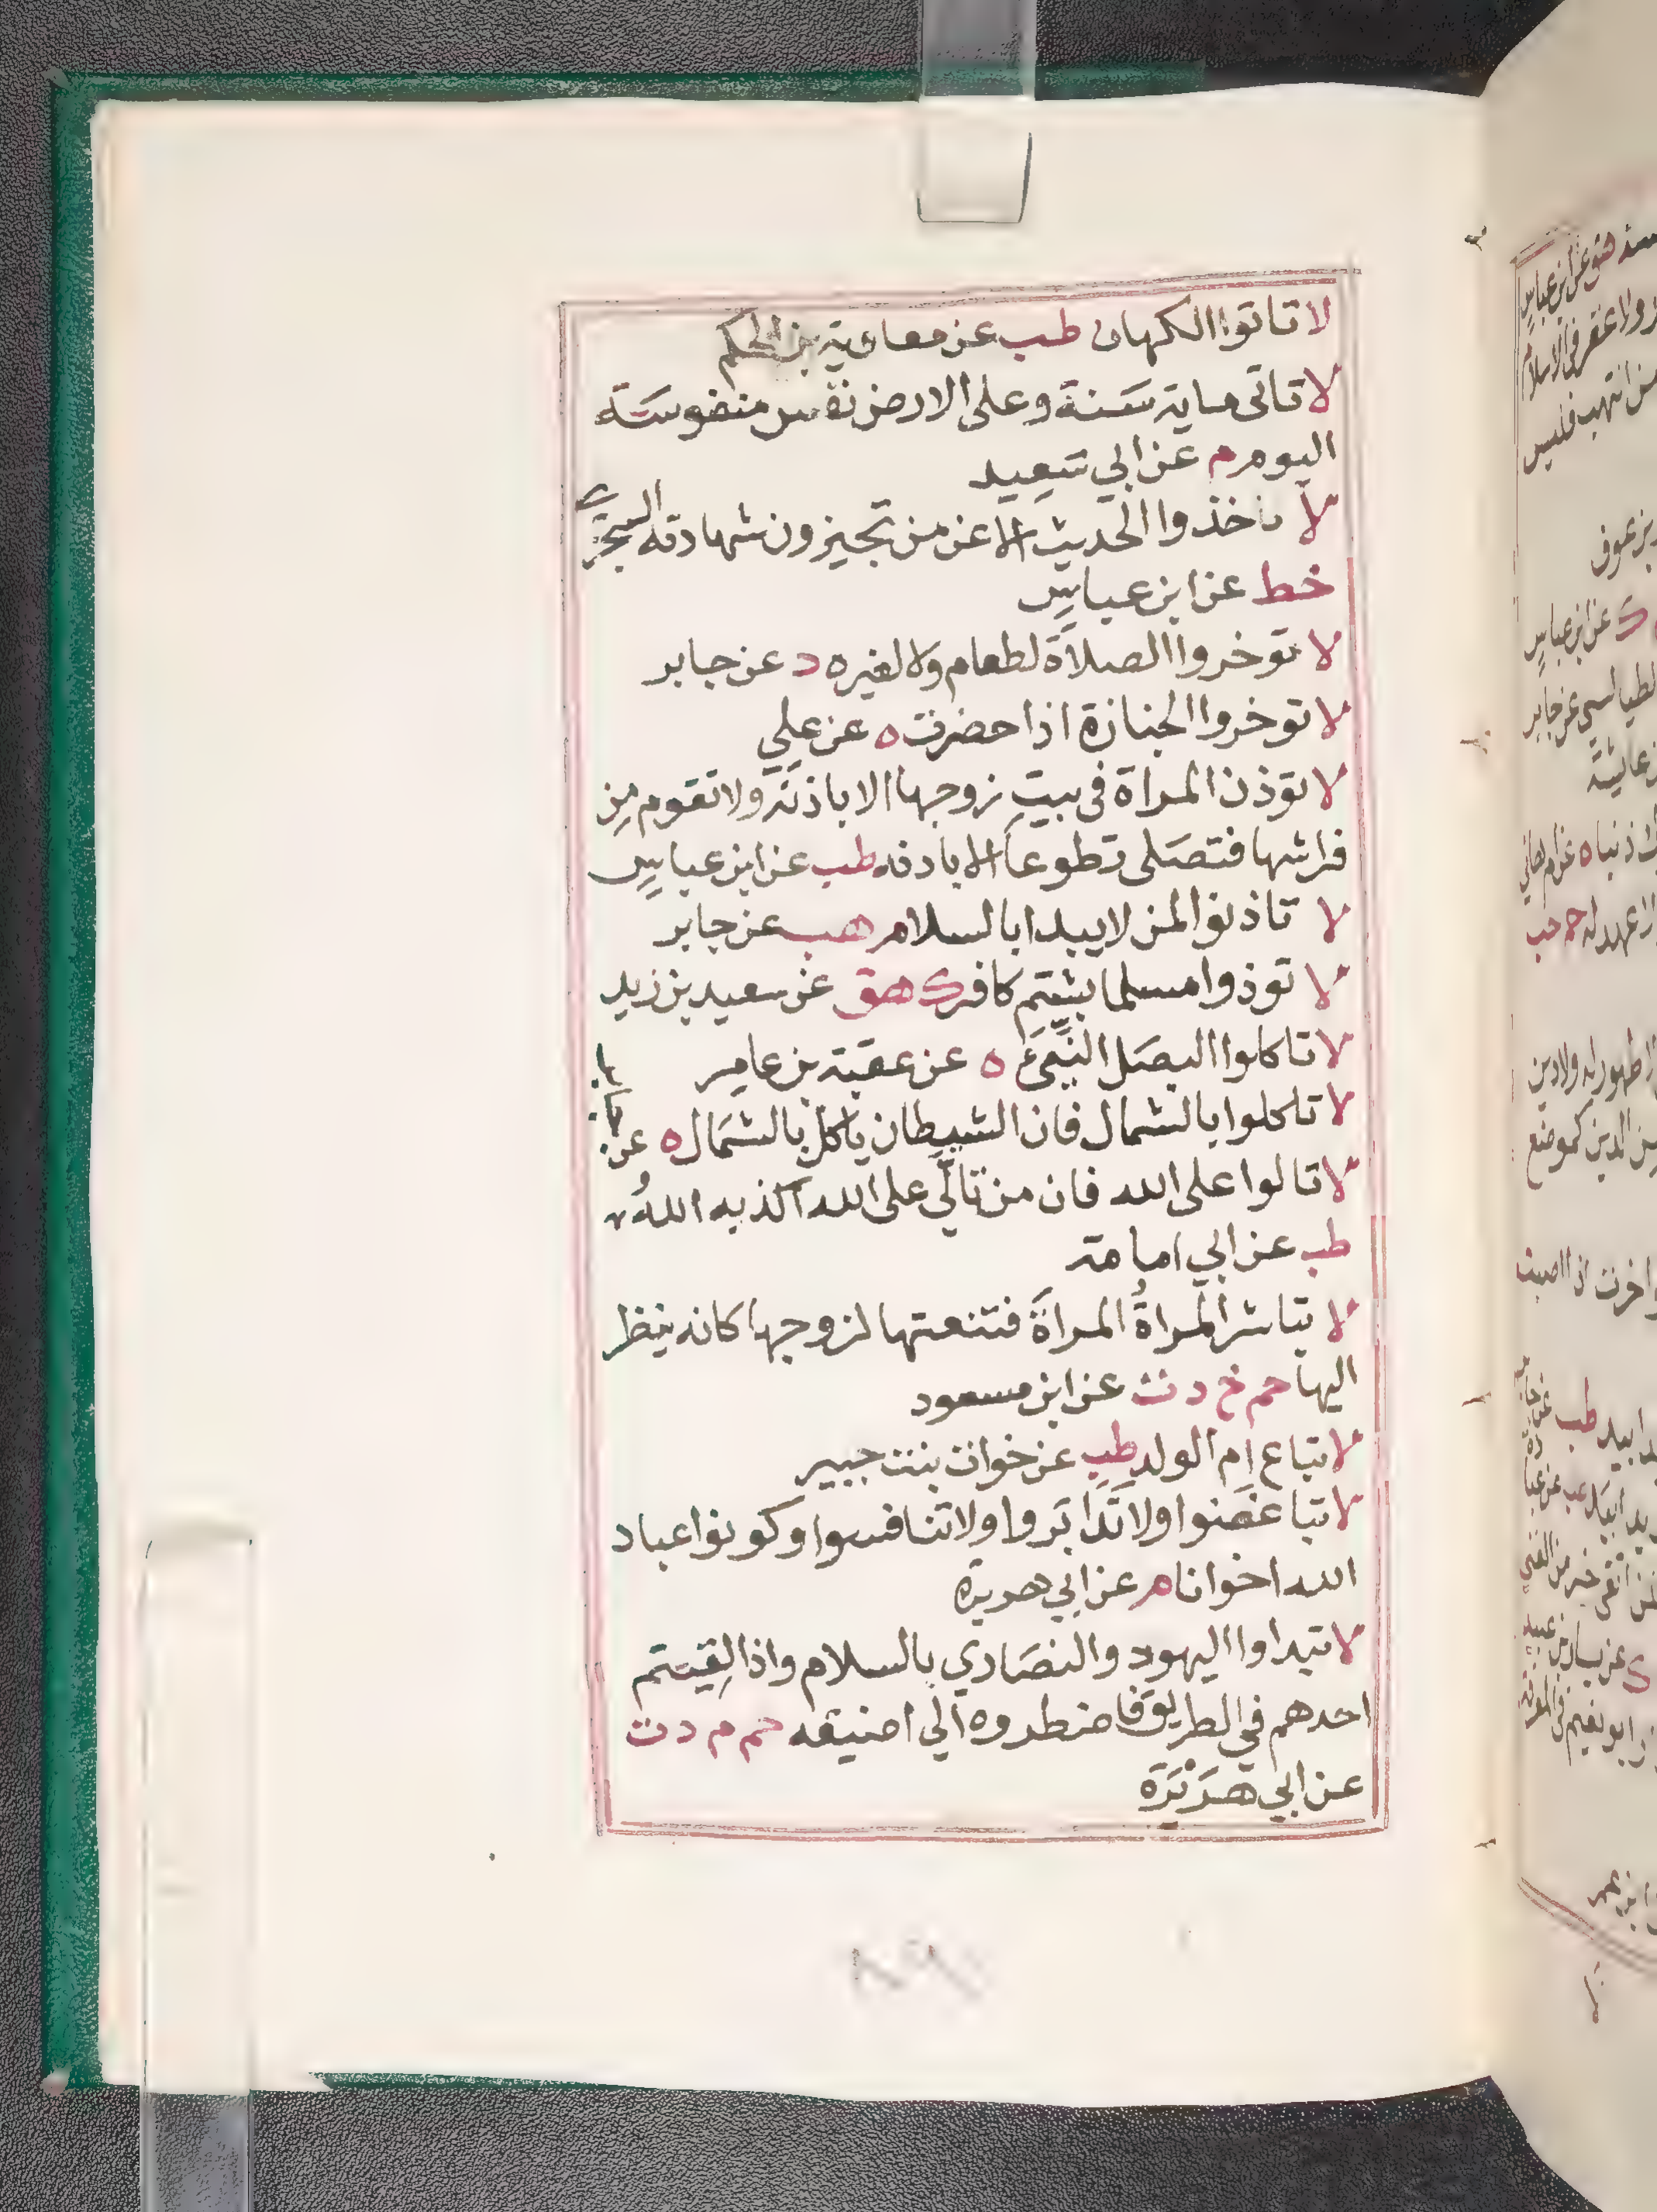 لا تاتوا الكهان طب عن معاوية بن الحكم
لا تاتى ماية سَنة وعلى الارض نفس منفوسَة
اليوم م عن ابي سَعِيد
لا تاخذوا الحَديث الا عن من تجيزون شهادته السجزي
خط عن ابن عباسٍ
لا توخروا الصلاَةَ لطعام ولا لغيره د عن جابر
لا توخروا الجنازة اذا حضرت ه عن علي
لا توذن المراة فى بيتِ زوجها الا باذنه ولا تقوم مِن
فراشها فتصَلى تطوعاً الا باذنه طب عن ابن عباسٍ
لا تاذنوا لمن لا يبدا بالسلام هب عن جابر
لا توذوا مسلما بشتم كافر ك هق عن سعيد بن زيد
لا تاكلوا البصَل النِّيَّ ه عن عقبة بن عامِر
لا تاكلوا بالشمال فان الشيطان ياكل بالشمَال ه عن جابر
لا تالوا على الله فان من تالَّي على الله اكذبه اللهُ
طب عن ابي امامة
لا تباشر المراةُ المراةَ فتنعتها لزوجها كانه ينظر
اليها حم خ د ت عن ابن مسعود
لا تباع ام الولد طب عن خوات بنت جبير
لا تباغضَوا ولا تَدَابَروا ولا تنافسوا وكونوا عباد
الله اخوانا م عن ابي هريرة
لا تبداوا اليهود والنصَاري بالسلام واذا لقِيتم
احدهم في الطريق فاضطروه الي اضيقه حم م د ت
عن ابي هُرَيْرَة